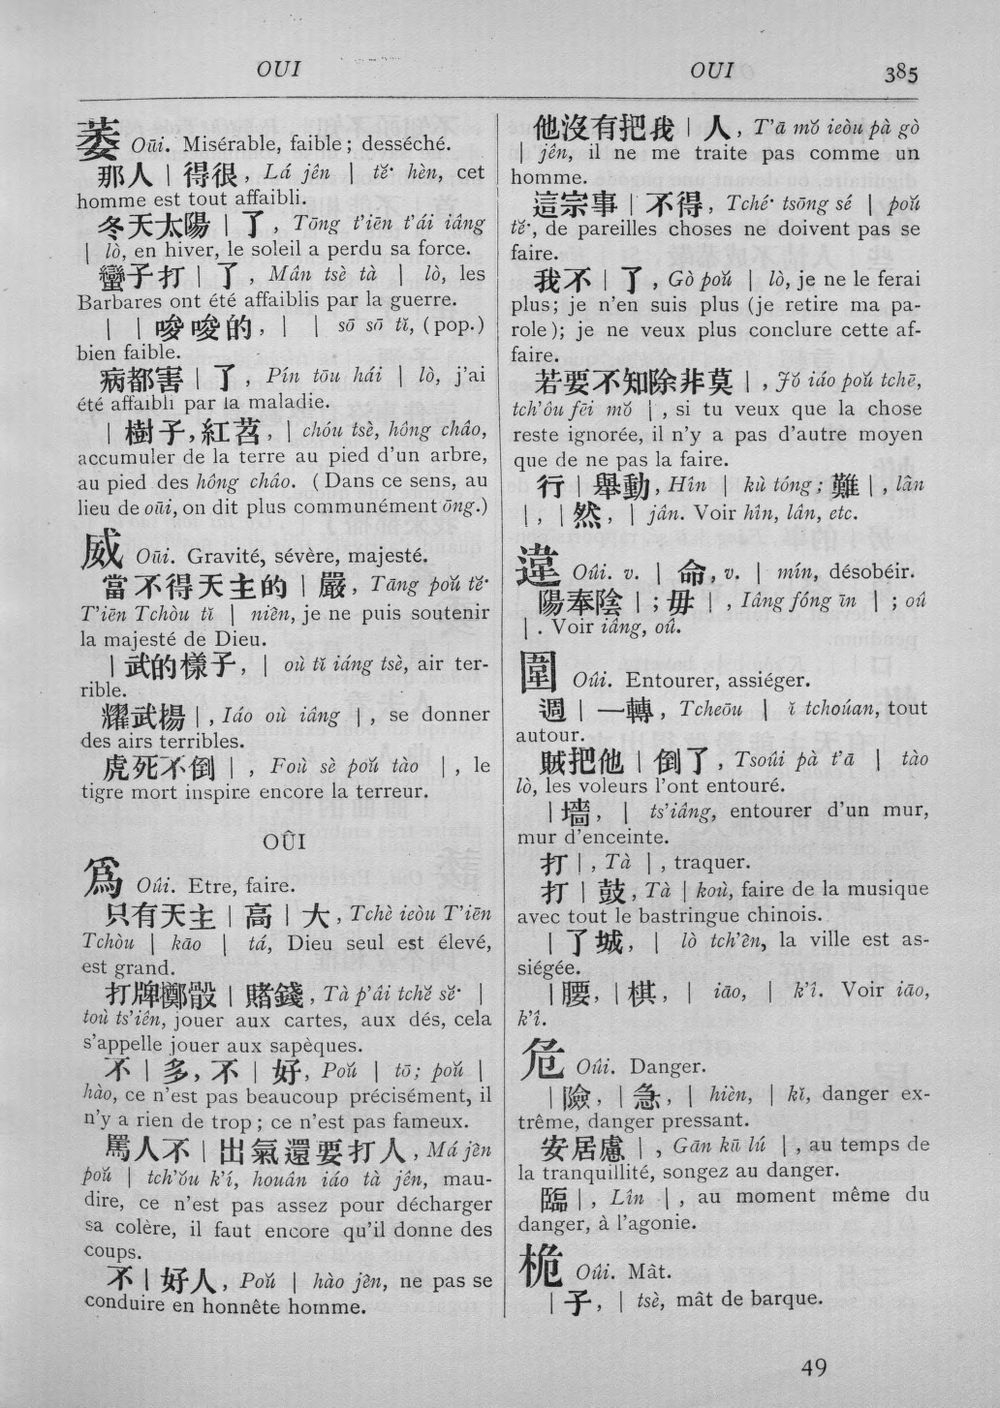 OUI
OUI
385
萎 Oūi. Misérable, faible; desséché.
那人 | 得很, Lá jên | tĕ̆· hèn, cet
homme est tout affaibli.
冬天太陽 | 了, Tōng t'iēn t'ái iâng
| lò, en hiver, le soleil a perdu sa force.
蠻子打 | 了, Mân tsè tà | lò, les
Barbares ont été affaiblis par la guerre.
| | 唆唆的, | | sō sō tĭ, (pop.)
bien faible.
病都害 | 了, Pín tōu hái | lò, j'ai
été affaibli par la maladie.
| 樹子,紅苕, | chóu tsè, hông châo,
accumuler de la terre au pied d'un arbre,
au pied des hông châo. (Dans ce sens, au
lieu de oūi, on dit plus communément ōng.)
威 Oūi. Gravité, sévère, majesté.
當不得天主的 | 嚴, Tāng poŭ tĕ·
T'iēn Tchòu tĭ | niên, je ne puis soutenir
la majesté de Dieu.
| 武的樣子, | où tĭ iáng tsè, air ter-
rible.
耀武揚 |, Iáo où iâng |, se donner
des airs terribles.
虎死不倒 |, Foù sè poŭ tào |, le
tigre mort inspire encore la terreur.
OÛI
爲 Oûi. Etre, faire.
只有天主 | 高 | 大, Tchè ieòu T'iēn
Tchòu | kāo | tá, Dieu seul est élevé,
est grand.
打牌擲骰 | 賭錢, Tà p'âi tchĕ sĕ· |
toù ts'iên, jouer aux cartes, aux dés, cela
s'appelle jouer aux sapèques.
不 | 多, 不 | 好, Poŭ | tō; poŭ |
hào, ce n'est pas beaucoup précisément, il
n'y a rien de trop; ce n'est pas fameux.
罵人不 | 出氣還要打人, Má jên
poŭ | tch'ŏu k'í, houân iáo tà jên, mau-
dire, ce n'est pas assez pour décharger
sa colère, il faut encore qu'il donne des
coups.
不 | 好人, Poŭ | hào jên, ne pas se
conduire en honnête homme.
他沒有把我 | 人, T'ā mŏ ieòu pà gò
| jên, il ne me traite pas comme un
homme.
這宗事 | 不得, Tché· tsōng sé | poŭ
tĕ·, de pareilles choses ne doivent pas se
faire.
我不 | 了, Gò poŭ | lò, je ne le ferai
plus; je n'en suis plus (je retire ma pa-
role); je ne veux plus conclure cette af-
faire.
若要不知除非莫 |, Jŏ iáo poŭ tchē,
tch'ôu fēi mŏ |, si tu veux que la chose
reste ignorée, il n'y a pas d'autre moyen
que de ne pas la faire.
行 | 舉動, Hîn | kù tóng; 難 |, lân
|, | 然, | jân. Voir hîn, lân, etc.
違 Oûi. v. | 命, v. | mín, désobéir.
陽奉陰 |; 毋 |, Iâng fóng īn |; oû
|. Voir iâng, oû.
圍 Oûi. Entourer, assiéger.
週 | 一轉, Tcheōu | ĭ tchoúan, tout
autour.
賊把他 | 倒了, Tsoûi pà t'ā | tào
lò, les voleurs l'ont entouré.
| 墻, | ts'iâng, entourer d'un mur,
mur d'enceinte.
打 |, Tà |, traquer.
打 | 鼓, Tà | koù, faire de la musique
avec tout le bastringue chinois.
| 了城, | lò tch'ên, la ville est as-
siégée.
| 腰, | 棋, | iāo, | k'î. Voir iāo,
k'î.
危 Oûi. Danger.
| 險, | 急, | hièn, | kĭ, danger ex-
trême, danger pressant.
安居慮 |, Gān kū lú |, au temps de
la tranquillité, songez au danger.
臨 |, Lîn |, au moment même du
danger, à l'agonie.
桅 Oûi. Mât.
| 子, | tsè, mât de barque.
49